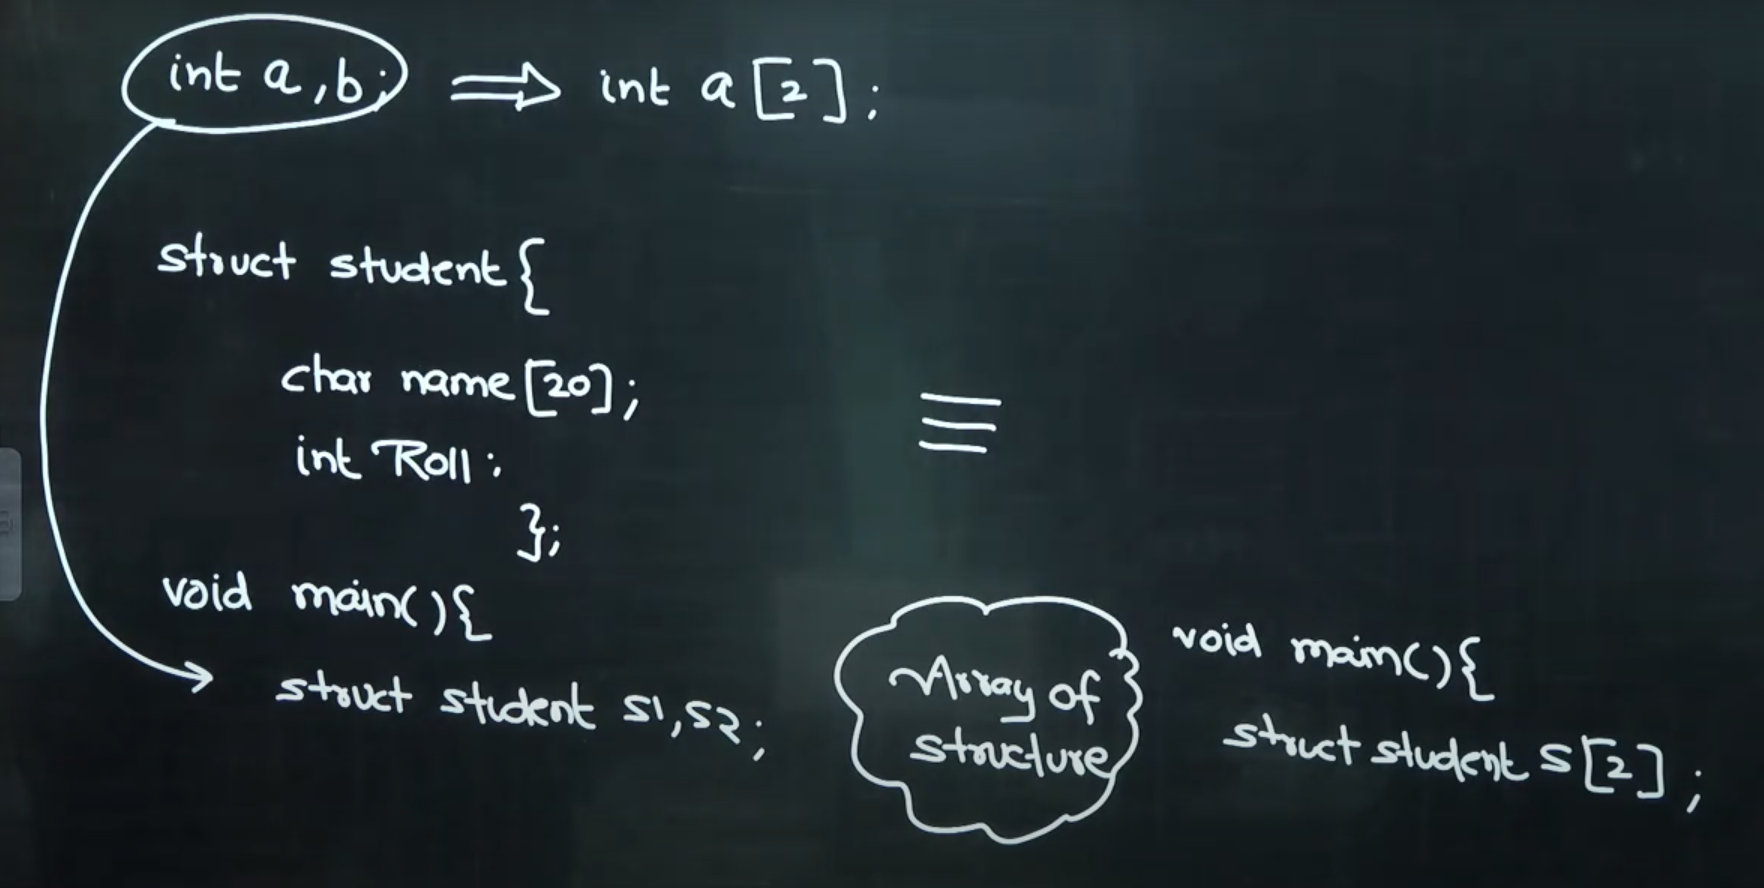 int a,b; ⟹ int a[2];
struct student{
char name[20];
int Roll;
};
void main(){
struct student s1,s2;
≡
Array of
structure
void main(){
struct student s[2];